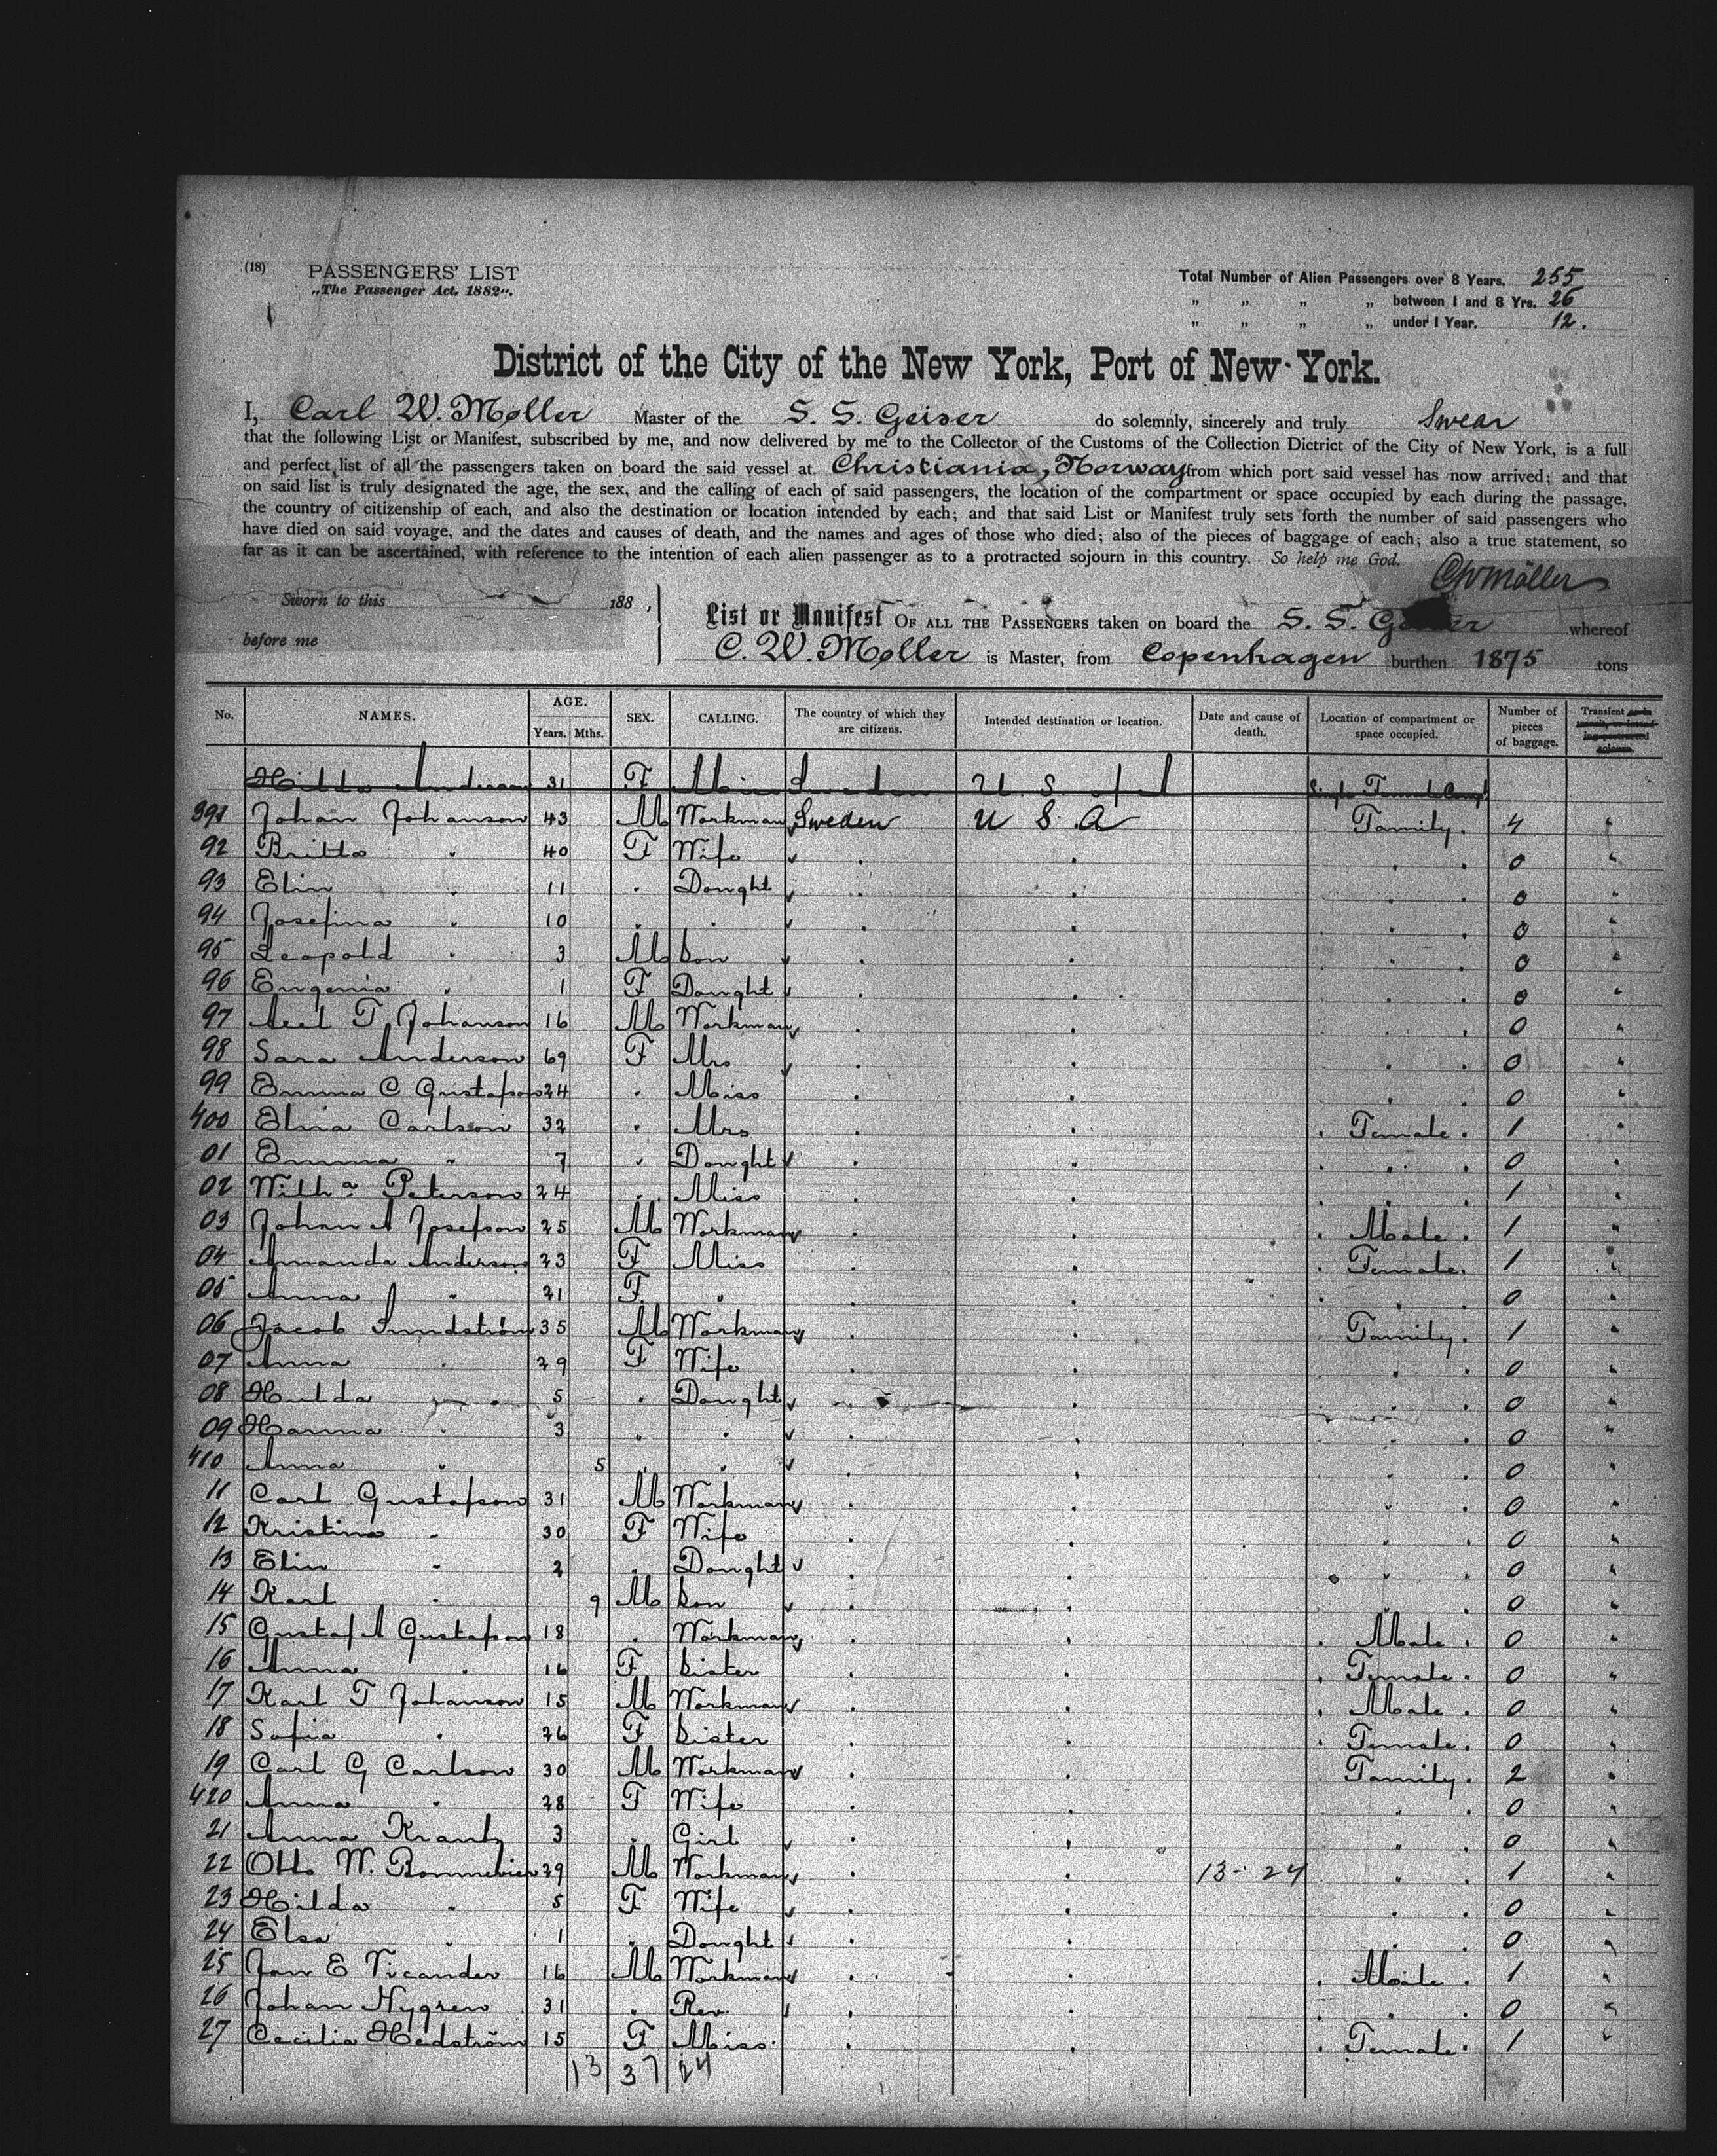 (18) PASSENGERS' LIST
„The Passenger Act, 1882".
Total Number of Alien Passengers over 8 Years. 255
„ „ „ „ between 1 and 8 Yrs. 26
„ „ „ „ under 1 Year. 12.
District of the City of the New York, Port of New-York.
I, Carl W. Møller Master of the S. S. Geiser do solemnly, sincerely and truly Swear
that the following List or Manifest, subscribed by me, and now delivered by me to the Collector of the Customs of the Collection District of the City of New York, is a full
and perfect list of all the passengers taken on board the said vessel at Christiania, Norway from which port said vessel has now arrived; and that
on said list is truly designated the age, the sex, and the calling of each of said passengers, the location of the compartment or space occupied by each during the passage,
the country of citizenship of each, and also the destination or location intended by each; and that said List or Manifest truly sets forth the number of said passengers who
have died on said voyage, and the dates and causes of death, and the names and ages of those who died; also of the pieces of baggage of each; also a true statement, so
far as it can be ascertained, with reference to the intention of each alien passenger as to a protracted sojourn in this country. So help me God.
CWMöller
Sworn to this 188 ,
before me
List or Manifest OF ALL THE PASSENGERS taken on board the S. S. Geiser whereof
C. W. Møller is Master, from Copenhagen burthen 1875 tons
No. NAMES. AGE. Years. Mths. SEX. CALLING. The country of which they are citizens. Intended destination or location. Date and cause of death. Location of compartment or space occupied. Number of pieces of baggage. Transient
Hilda Anderson 31 F Miss Sweden U. S. A
391 Johan Johanson 43 M Workman Sweden U S A Family. 4 "
92 Britta " 40 F Wife " " " 0 "
93 Elin " 11 " Daught " " " 0 "
94 Josefina " 10 " " " " " 0 "
95 Leopold " 3 M Son " " " 0 "
96 Eugenia " 1 F Daught " " " 0 "
97 Axel T. Johanson 16 M Workman " " " 0 "
98 Sara Anderson 69 F Mrs " " " 0 "
99 Emma C Gustafson 24 " Miss " " " 0 "
400 Elina Carlson 32 " Mrs " " Female. 1 "
01 Emma " 7 " Daught " " " 0 "
02 Wilhª Peterson 24 " Miss " " " 1 "
03 Johan A Josefson 25 M Workman " " Male. 1 "
04 Amanda Anderson 23 F Miss " " Female. 1 "
05 Anna " 21 F " " " " 0 "
06 Jacob Sundström 35 M Workman " " Family. 1 "
07 Anna " 29 F Wife " " " 0 "
08 Hulda " 5 " Daught " " " 0 "
09 Hanna " 3 " " " " " 0 "
410 Anna " 5 " " " " " 0 "
11 Carl Gustafson 31 M Workman " " " 0 "
12 Kristina " 30 F Wife " " " 0 "
13 Elin " 2 " Daught " " " 0 "
14 Karl " 9 M Son " " " 0 "
15 Gustaf A Gustafson 18 " Workman " " Male. 0 "
16 Anna " 16 F Sister " " Female. 0 "
17 Karl T Johanson 15 M Workman " " Male. 0 "
18 Sofia " 26 F Sister " " Female. 0 "
19 Carl G Carlson 30 M Workman " " Family. 2 "
420 Anna " 28 F Wife " " " 0 "
21 Anna Krantz 3 " Girl " " " 0 "
22 Otto W. 29 M Workman " " 13- 24 " 1 "
23 Hilda " 5 F Wife " " " 0 "
24 Elsa " 1 " Daught " " " 0 "
25 Jon E Vicander 16 M Workman " " Male. 1 "
26 Johan Nygren 31 " Rev. " " " 0 "
27 Cecilia Hedström 15 F Miss. " " Female. 1 "
13 37 24